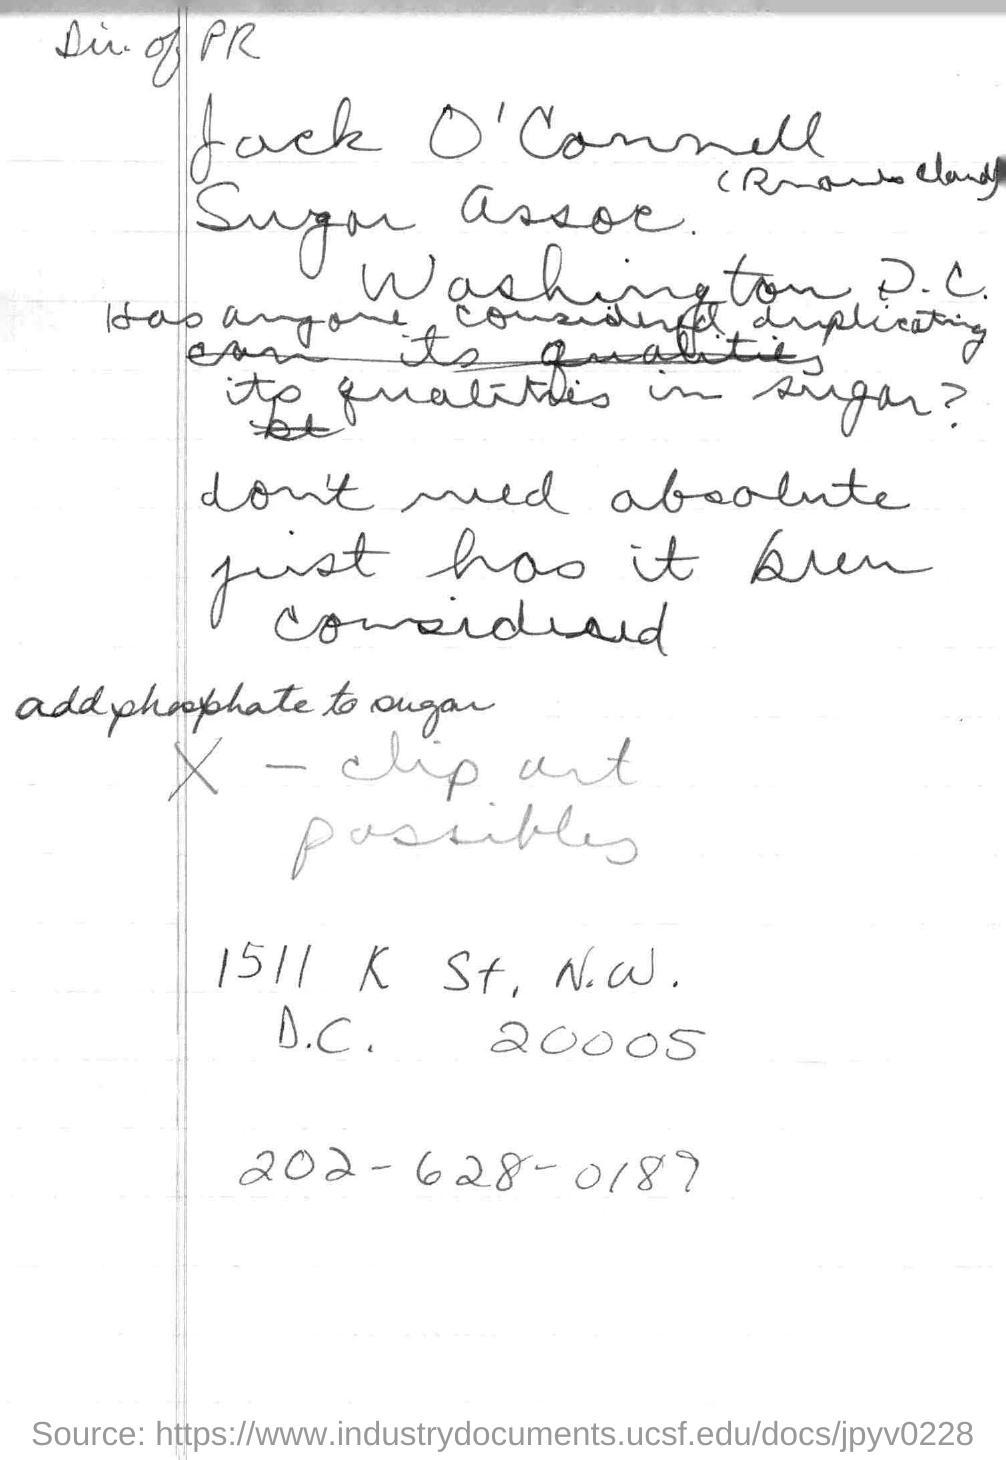 Dir. of PR
Jack O'Connell
Sugar Assoc.
Washington D.C.
Has anyone considered duplicating
can its qualities
its qualities in sugar?
don't need absolute
just has it been
considered
add phosphate to sugar
X - clip art
possibles
1511 K St, N.W.
D.C. 20005
202-628-0189
Source: https://www.industrydocuments.ucsf.edu/docs/jpyv0228